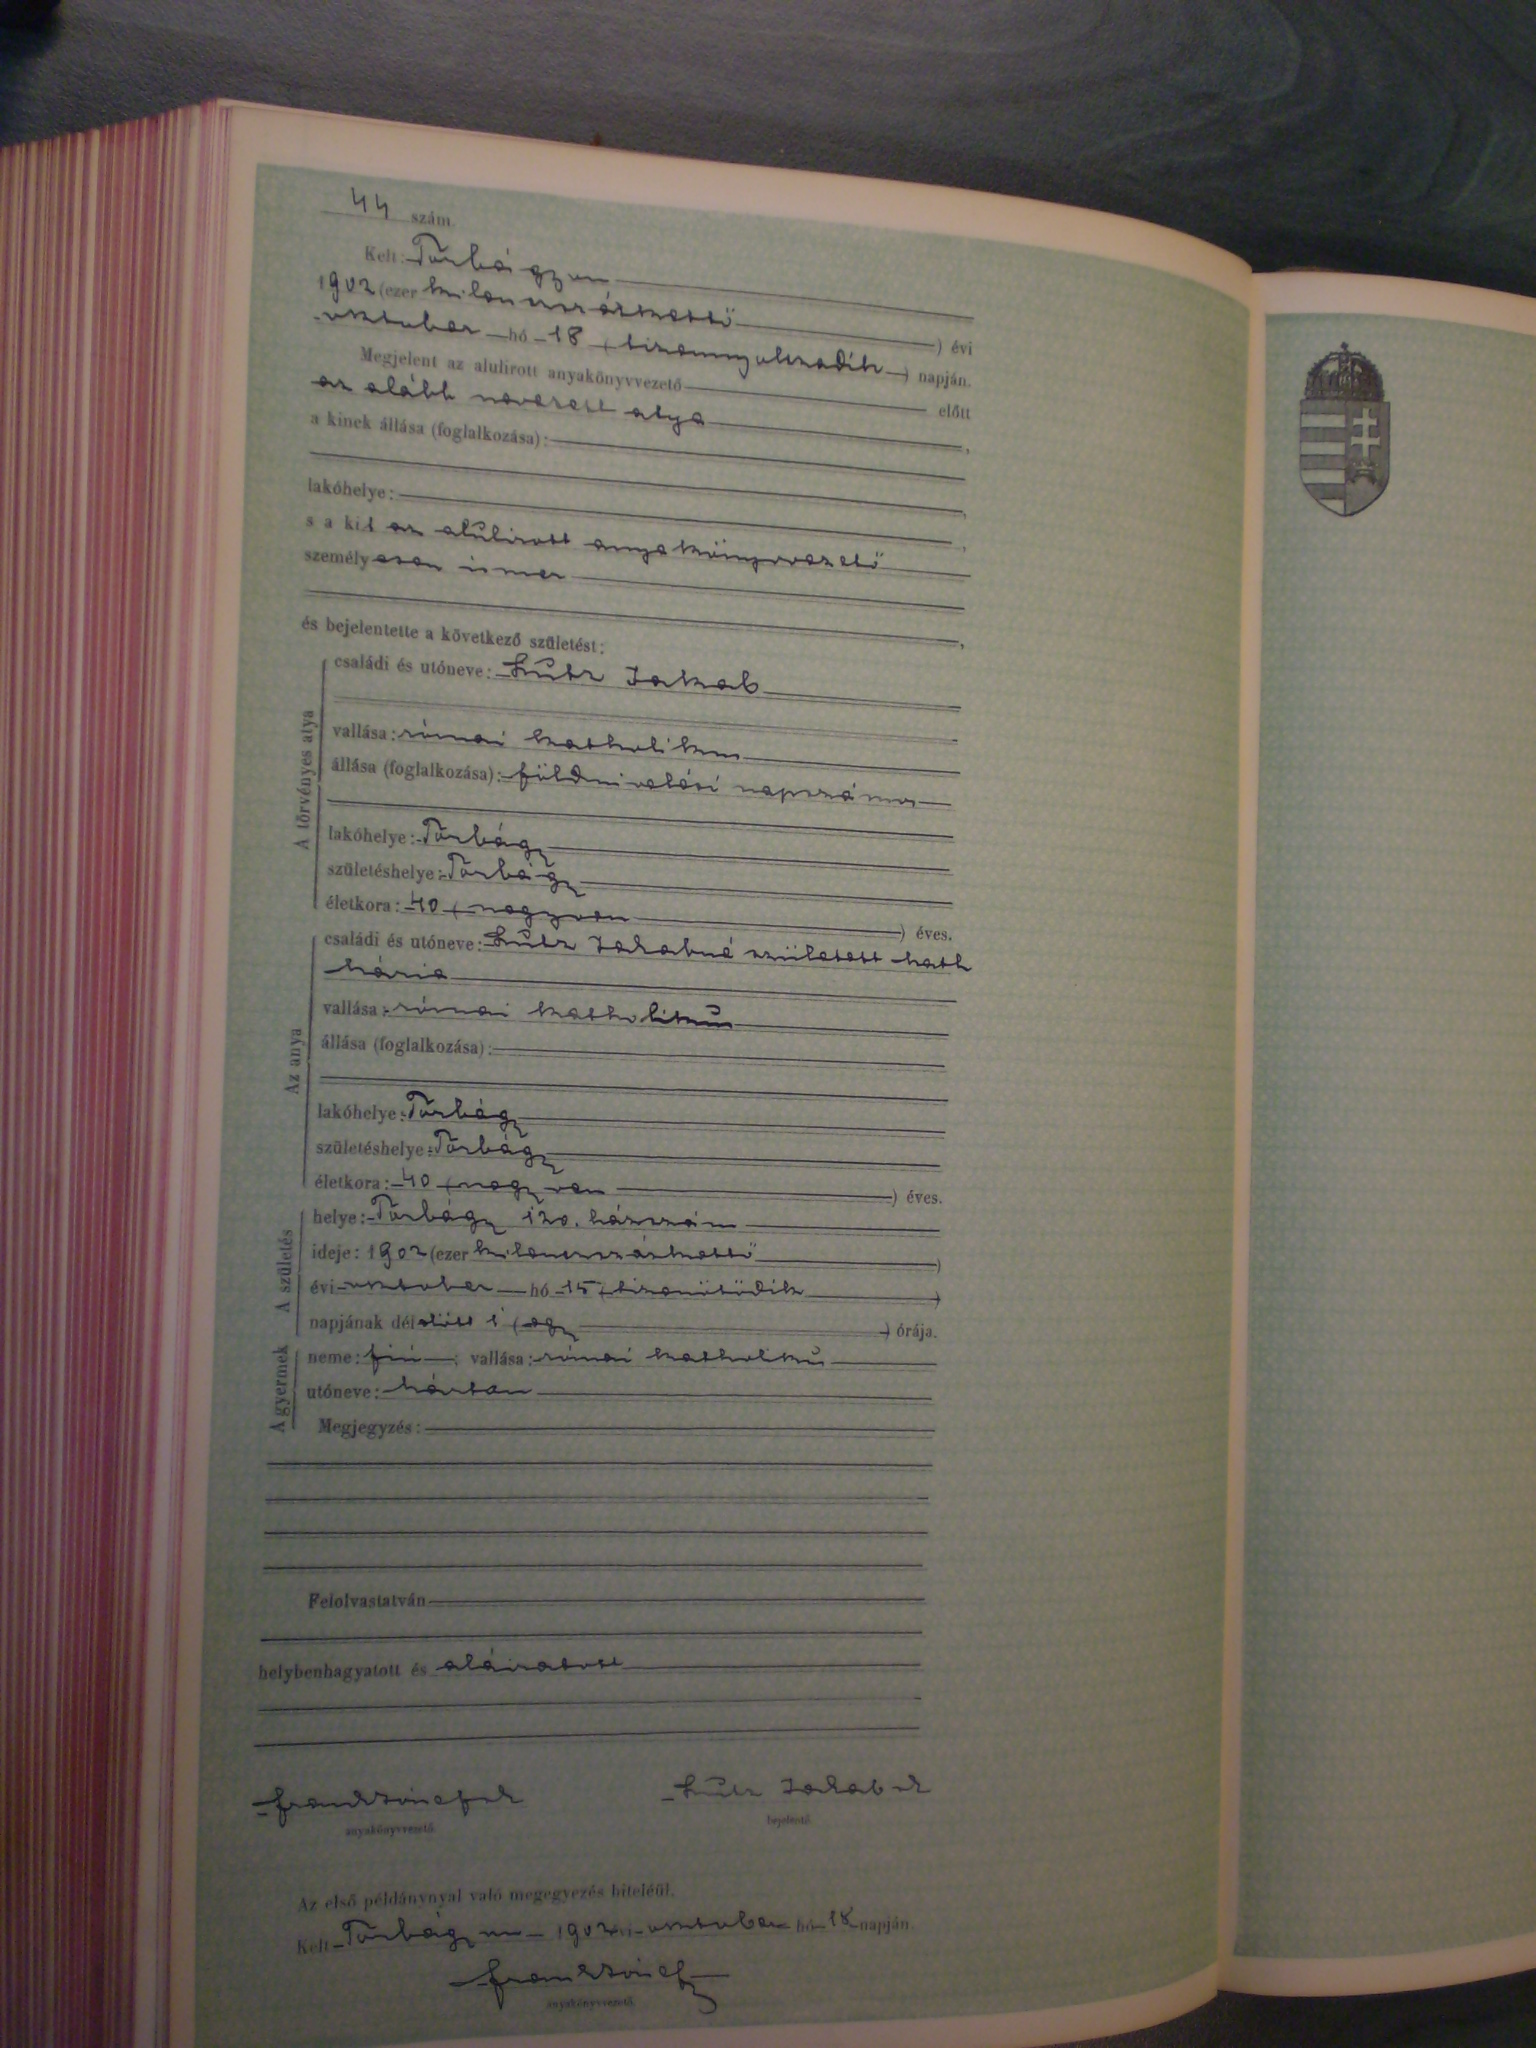 44 szám.
Kelt: Törbágyon
1902 (ezer kilencszázkettő ) évi
október hó 18 (tizennyolczadik ) napján.
Megjelent az alulirott anyakönyvvezető előtt
az alább nevezett atya ,
a kinek állása (foglalkozása):
lakóhelye: ,
s a kit az alulirott anyakönyvvezető
személyesen ismer ,
és bejelentette a következő születést:
A törvényes atya
családi és utóneve: Lutz Jakab
vallása: római katholikus
állása (foglalkozása): földmivelési napszámos
lakóhelye: Törbágy
születéshelye: Törbágy
életkora: 40 (negyven ) éves.
Az anya
családi és utóneve: Lutz Jakabné született
Mária
vallása: római katholikus
állása (foglalkozása):
lakóhelye: Törbágy
születéshelye: Törbágy
életkora: 40 (negyven ) éves.
A születés
helye: Törbágy 120. házszám
ideje: 1902 (ezer kilencszázkettő )
évi október hó 15 (tizenötödik )
napjának délelőtt 1 (egy ) órája.
A gyermek
neme: fiú ; vallása: római katholikus
utóneve: Márton
Megjegyzés:
Felolvastatván
helybenhagyatott és aláiratott
Lutz Jakab
anyakönyvvezető bejelentő
Az első példánynyal való megegyezés hiteléül.
Kelt Törbágyon 1902 évi október hó 18 napján.
anyakönyvvezető